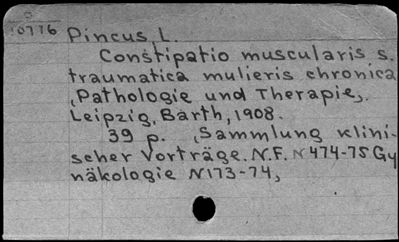 10776
Pincus L.
Constipatio muscularis s.
traumatica mulieris chronica
„Pathologie und Therapie„.
Leipzig, Barth, 1908.
39 p. „Sammlung klini-
scher Vorträge. N.F. N 474-75 Gy
näkologie N 173-74„